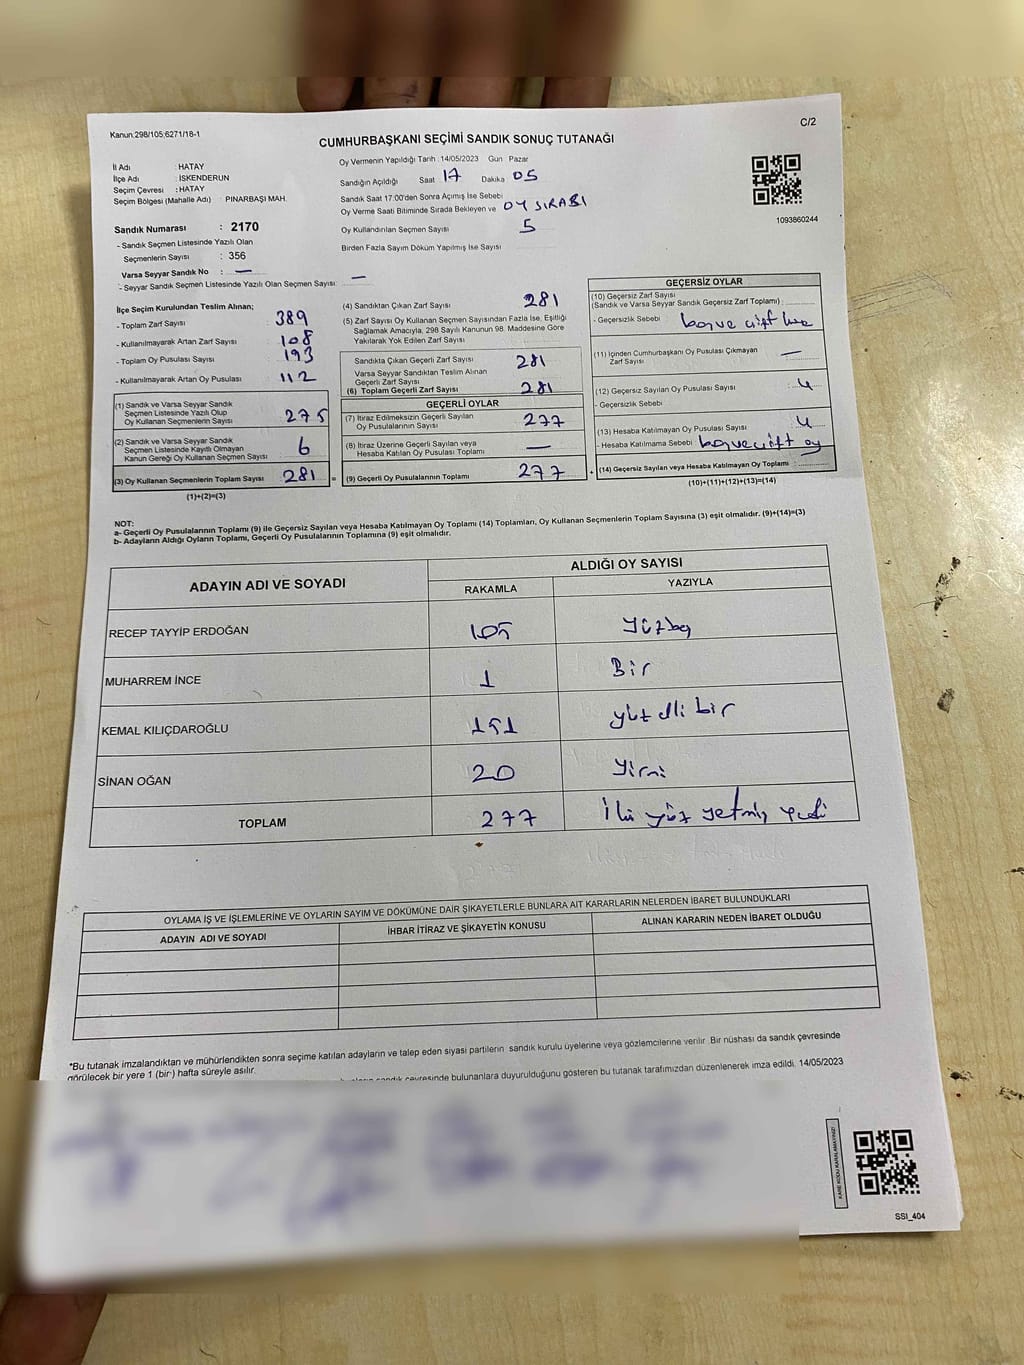 Kanun:298/105;6271/18-1
C/2
CUMHURBAŞKANI SEÇİMİ SANDIK SONUÇ TUTANAĞI
İl Adı : HATAY
İlçe Adı : İSKENDERUN
Seçim Çevresi : HATAY
Seçim Bölgesi (Mahalle Adı) : PINARBAŞI MAH.
Sandık Numarası : 2170
- Sandık Seçmen Listesinde Yazılı Olan
Seçmenlerin Sayısı : 356
Varsa Seyyar Sandık No : —
- Seyyar Sandık Seçmen Listesinde Yazılı Olan Seçmen Sayısı: —
Oy Vermenin Yapıldığı Tarih : 14/05/2023 Gün Pazar
Sandığın Açıldığı Saat 17 Dakika 05
Sandık Saat 17:00'den Sonra Açılmış İse Sebebi
Oy Verme Saati Bitiminde Sırada Bekleyen ve OY SIRASI
Oy Kullandırılan Seçmen Sayısı 5
Birden Fazla Sayım Döküm Yapılmış İse Sayısı
1093860244
İlçe Seçim Kurulundan Teslim Alınan;
- Toplam Zarf Sayısı 389
- Kullanılmayarak Artan Zarf Sayısı 108
- Toplam Oy Pusulası Sayısı 193
- Kullanılmayarak Artan Oy Pusulası 112
(1) Sandık ve Varsa Seyyar Sandık
Seçmen Listesinde Yazılı Olup
Oy Kullanan Seçmenlerin Sayısı 275
(2) Sandık ve Varsa Seyyar Sandık
Seçmen Listesinde Kayıtlı Olmayan
Kanun Gereği Oy Kullanan Seçmen Sayısı 6
(3) Oy Kullanan Seçmenlerin Toplam Sayısı 281
(1)+(2)=(3)
(4) Sandıktan Çıkan Zarf Sayısı 281
(5) Zarf Sayısı Oy Kullanan Seçmen Sayısından Fazla İse, Eşitliği
Sağlamak Amacıyla, 298 Sayılı Kanunun 98. Maddesine Göre
Yakılarak Yok Edilen Zarf Sayısı
Sandıkta Çıkan Geçerli Zarf Sayısı 281
Varsa Seyyar Sandıktan Teslim Alınan
Geçerli Zarf Sayısı
(6) Toplam Geçerli Zarf Sayısı 281
GEÇERLİ OYLAR
(7) İtiraz Edilmeksizin Geçerli Sayılan
Oy Pusulalarının Sayısı 277
(8) İtiraz Üzerine Geçerli Sayılan veya
Hesaba Katılan Oy Pusulası Toplamı —
(9) Geçerli Oy Pusulalarının Toplamı 277
GEÇERSİZ OYLAR
(10) Geçersiz Zarf Sayısı
(Sandık ve Varsa Seyyar Sandık Geçersiz Zarf Toplamı) :
- Geçersizlik Sebebi :
(11) İçinden Cumhurbaşkanı Oy Pusulası Çıkmayan
Zarf Sayısı —
(12) Geçersiz Sayılan Oy Pusulası Sayısı : 4
- Geçersizlik Sebebi
(13) Hesaba Katılmayan Oy Pusulası Sayısı : 4
- Hesaba Katılmama Sebebi boş ve çift oy
(14) Geçersiz Sayılan veya Hesaba Katılmayan Oy Toplamı :
(10)+(11)+(12)+(13)=(14)
NOT:
a- Geçerli Oy Pusulalarının Toplamı (9) ile Geçersiz Sayılan veya Hesaba Katılmayan Oy Toplamı (14) Toplamları, Oy Kullanan Seçmenlerin Toplam Sayısına (3) eşit olmalıdır. (9)+(14)=(3)
b- Adayların Aldığı Oyların Toplamı, Geçerli Oy Pusulalarının Toplamına (9) eşit olmalıdır.
ADAYIN ADI VE SOYADI
ALDIĞI OY SAYISI
RAKAMLA YAZIYLA
RECEP TAYYİP ERDOĞAN 105 Yüzbeş
MUHARREM İNCE 1 Bir
KEMAL KILIÇDAROĞLU 151 yüz elli bir
SİNAN OĞAN 20 Yirmi
TOPLAM 277 İki yüz yetmiş yedi
OYLAMA İŞ VE İŞLEMLERİNE VE OYLARIN SAYIM VE DÖKÜMÜNE DAİR ŞİKAYETLERLE BUNLARA AİT KARARLARIN NELERDEN İBARET BULUNDUKLARI
ADAYIN ADI VE SOYADI
İHBAR İTİRAZ VE ŞİKAYETİN KONUSU
ALINAN KARARIN NEDEN İBARET OLDUĞU
*Bu tutanak imzalandıktan ve mühürlendikten sonra seçime katılan adayların ve talep eden siyasi partilerin sandık kurulu üyelerine veya gözlemcilerine verilir. Bir nüshası da sandık çevresinde
görülecek bir yere 1 (bir) hafta süreyle asılır.
sandık çevresinde bulunanlara duyurulduğunu gösteren bu tutanak tarafımızdan düzenlenerek imza edildi. 14/05/2023
KARE KODU KARALAMAYINIZ!
SSI_404